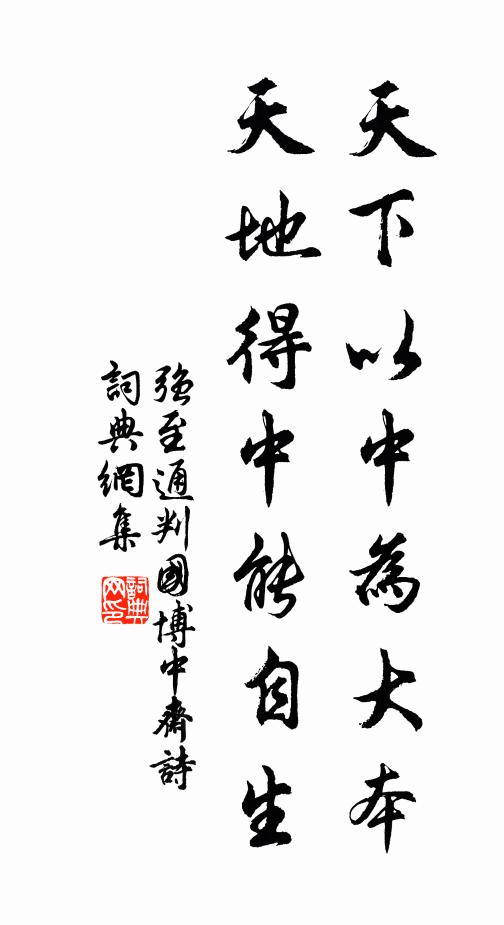 天下以中為大本
天地得中能自生
強至通判國博中齋詩
詞典網集
詞典網印